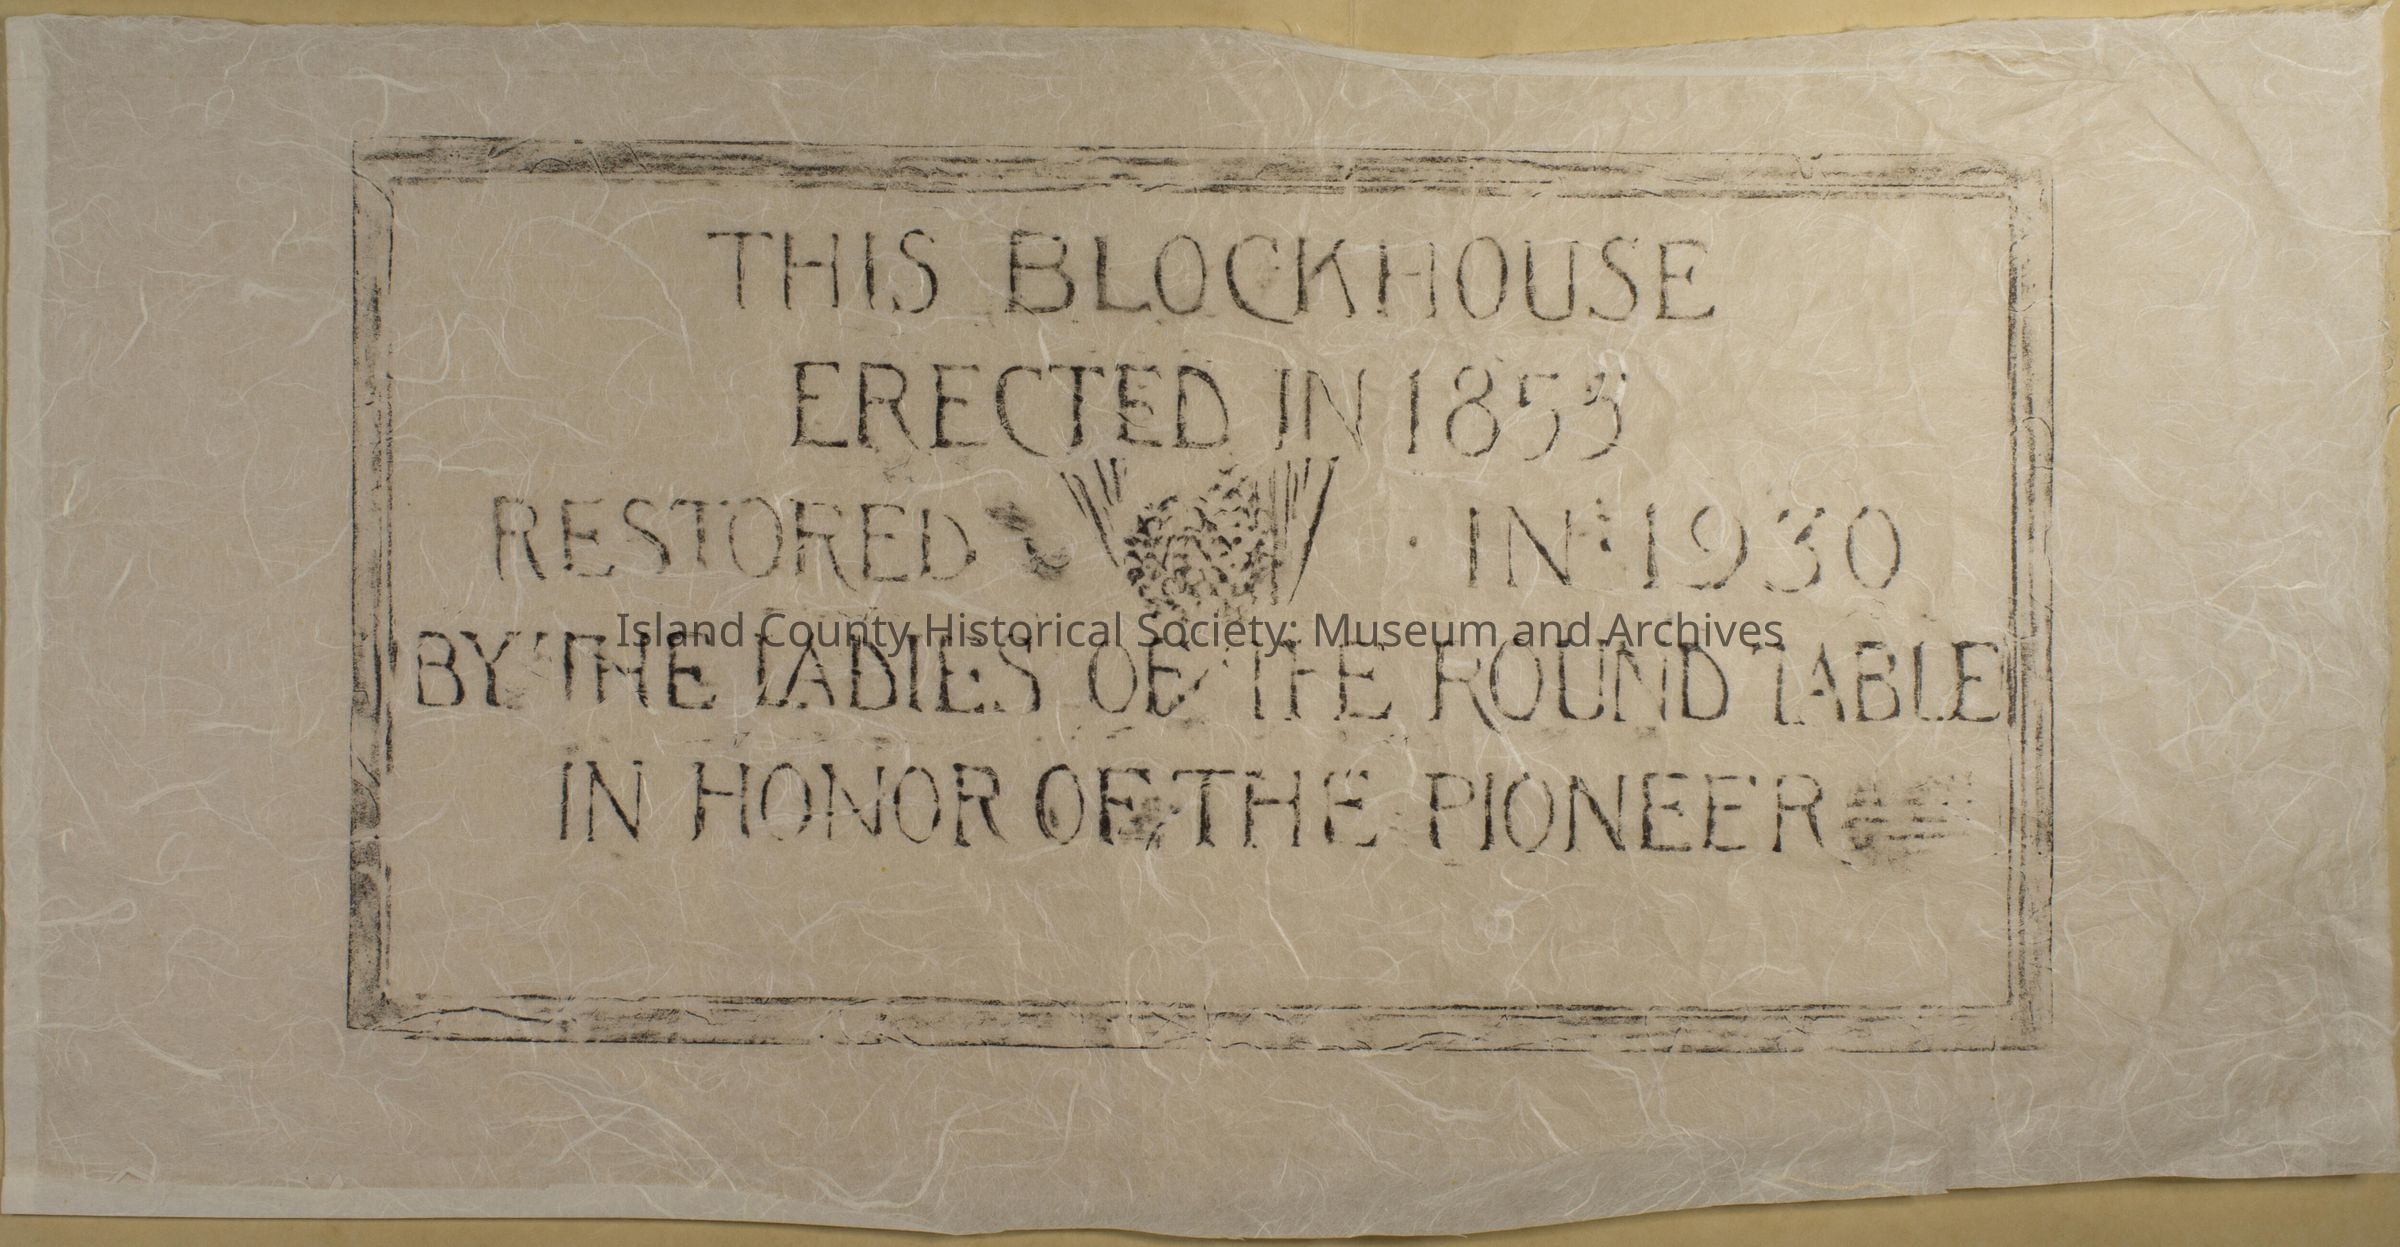 THIS BLOCKHOUSE
ERECTED IN 1855
RESTORED IN 1930
Island County Historical Society: Museum and Archives
BY THE LADIES OF THE ROUND TABLE
IN HONOR OF THE PIONEER